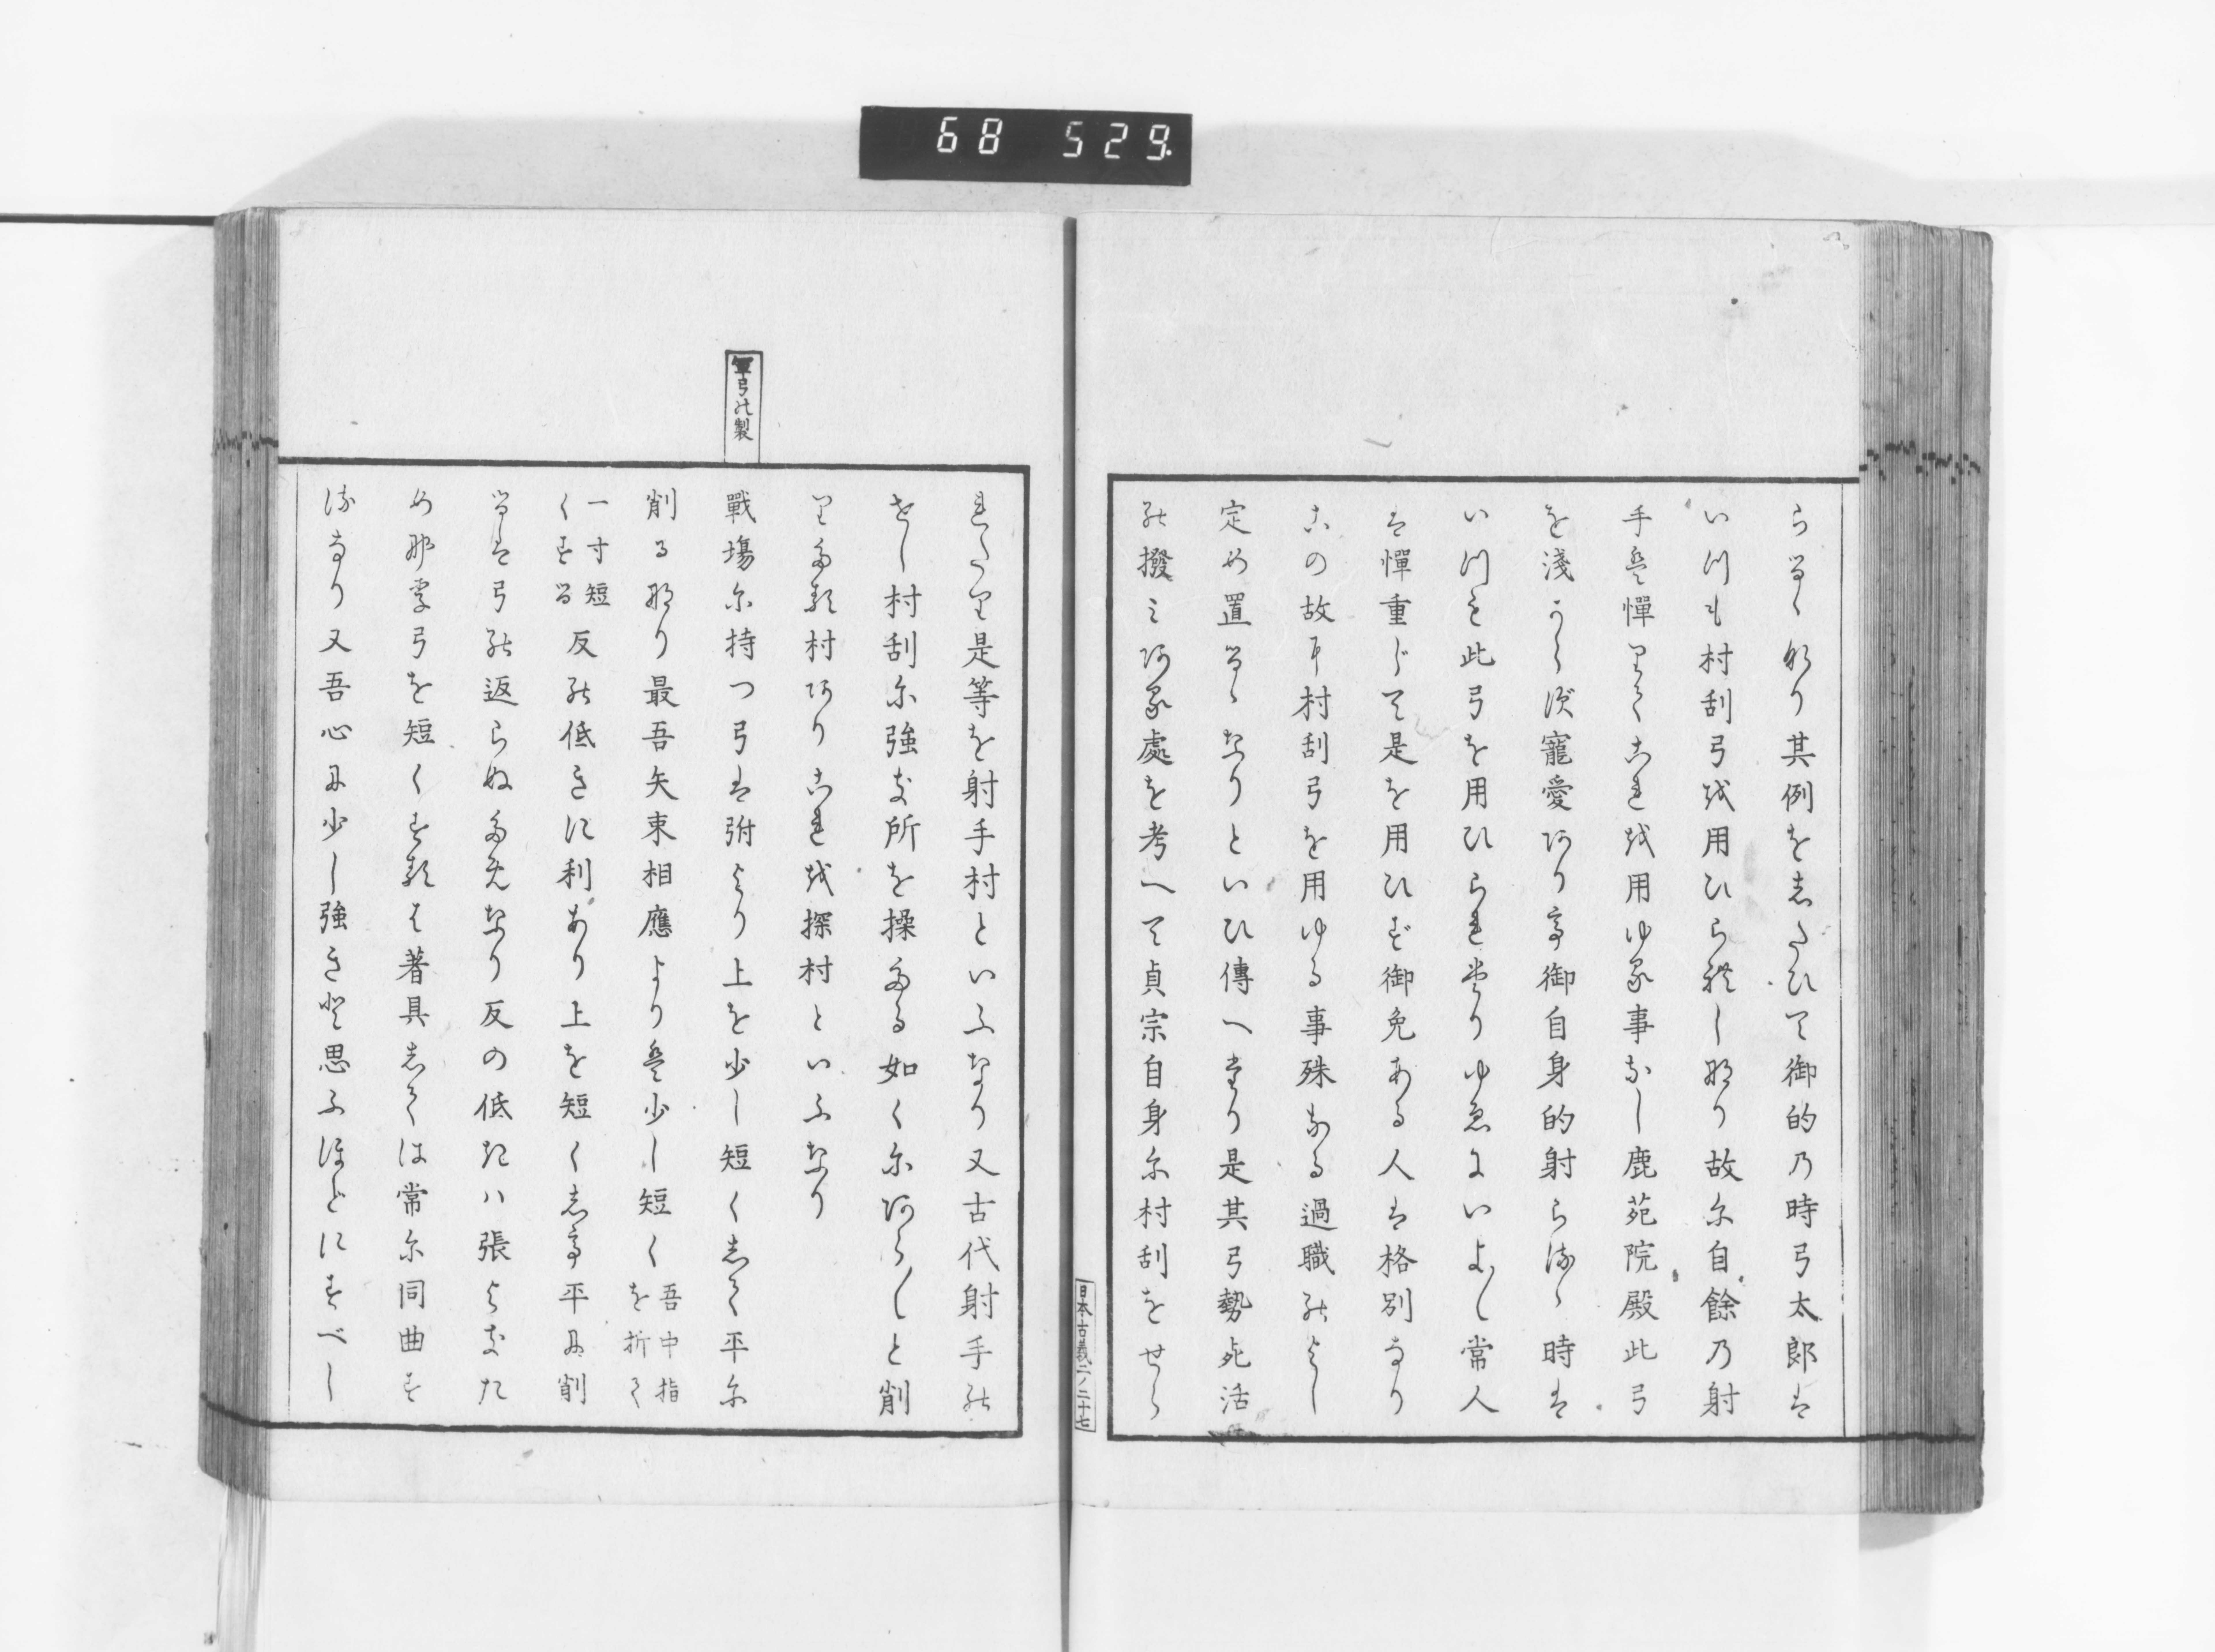 68 529
らるゝなり其例をしたひて御的の時弓太郎は
いつも村刮弓を用ひられしなり故に自餘の射
手は憚りてこれを用ゆる事なし鹿苑院殿此弓
を淺からず寵愛あり亭御自身的射らるゝ時は
いつも此弓を用ひられたりゆゑにいよ〳〵常人
は憚重じて是を用ひず御免ある人は格別なり
この故に村刮弓を用ゆる事殊なる過職のよし
定め置るゝなりといひ傳へたり是其弓勢死活
の撥みある處を考へて貞宗自身に村刮をせら
日本古義二ノ二十七
れたり是等を射手村といふなり又古代射手の
をし村刮に強き所を操たる如くにあら〳〵と削
りたる村ありこれを探村といふなり
軍弓の製
戰場に持つ弓は弣より上を少し短くして平に
削るなり最吾矢束相應よりは少し短く吾中指を折て
一寸短くする反の低きに利あり上を短くして平に削
るは弓の返らぬためなり反の低きハ張よきた
め那李弓を短くするは著具しては常に同曲す
るなり又吾心に少し強きと思ふほどにすべし